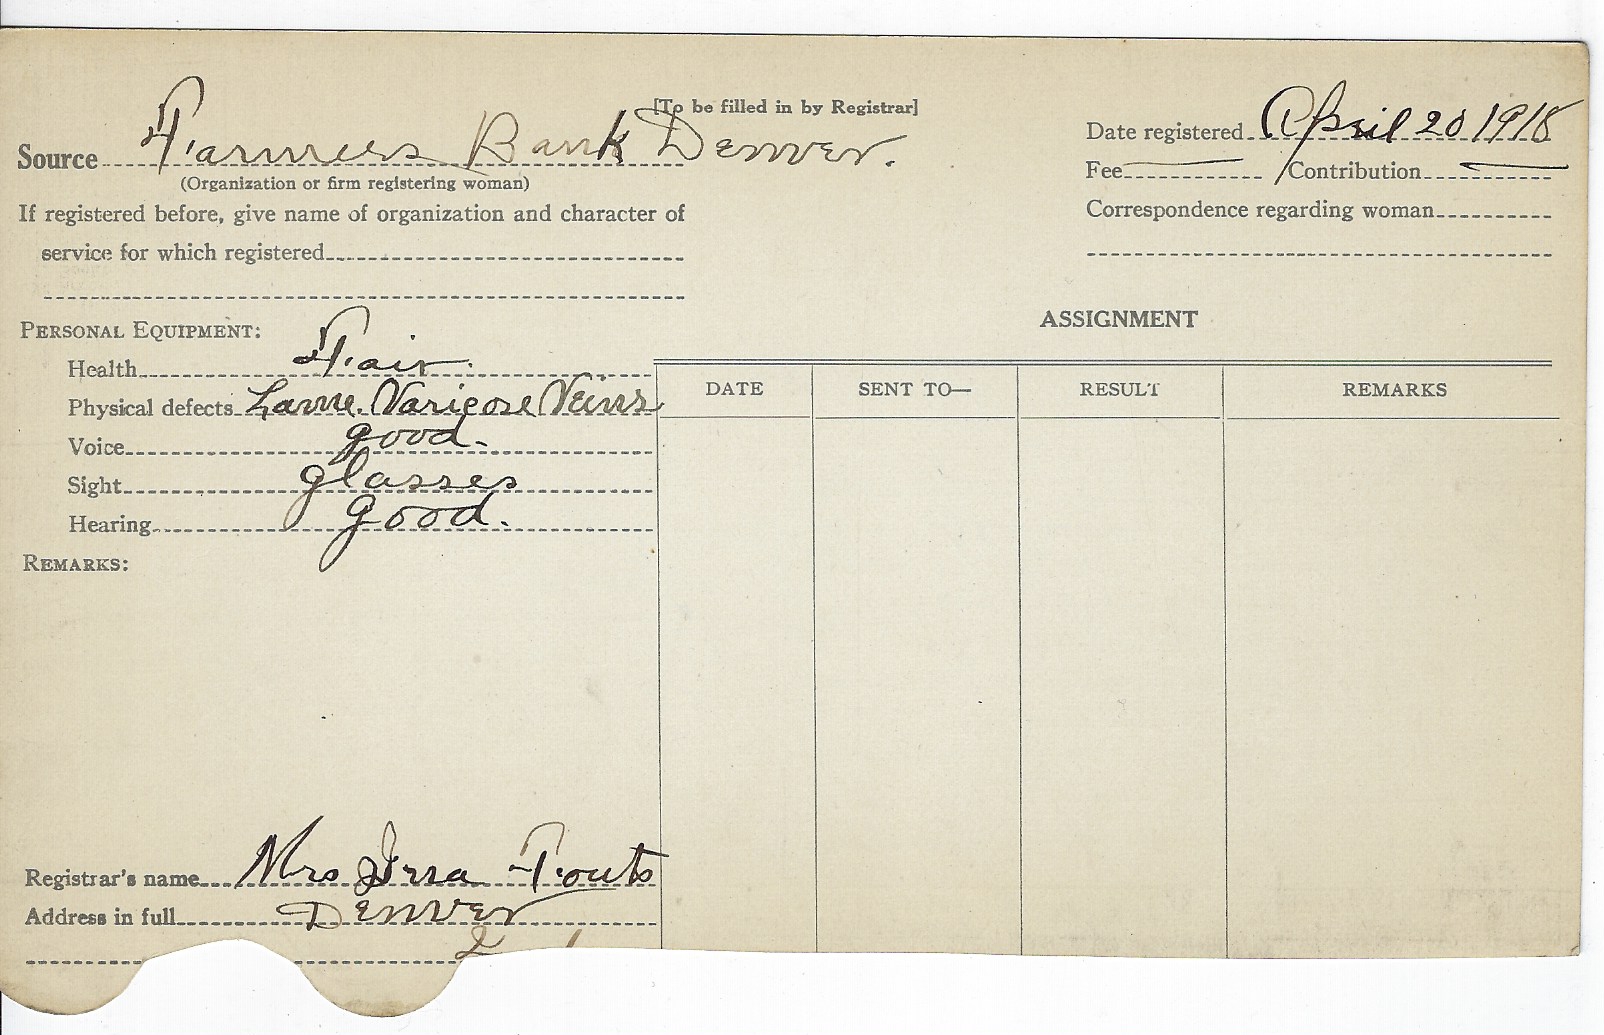 [To be filled in by Registrar]
Source Farmers Bank Denver.
(Organization or firm registering woman)
If registered before, give name of organization and character of
service for which registered
Date registered April 20 1918
Fee Contribution
Correspondence regarding woman
PERSONAL EQUIPMENT:
Health Fair.
Physical defects Lame. Varicose Veins
Voice good.
Sight glasses
Hearing good.
REMARKS:
ASSIGNMENT
DATE SENT TO— RESULT REMARKS
Registrar's name Mrs Fouts
Address in full Denver